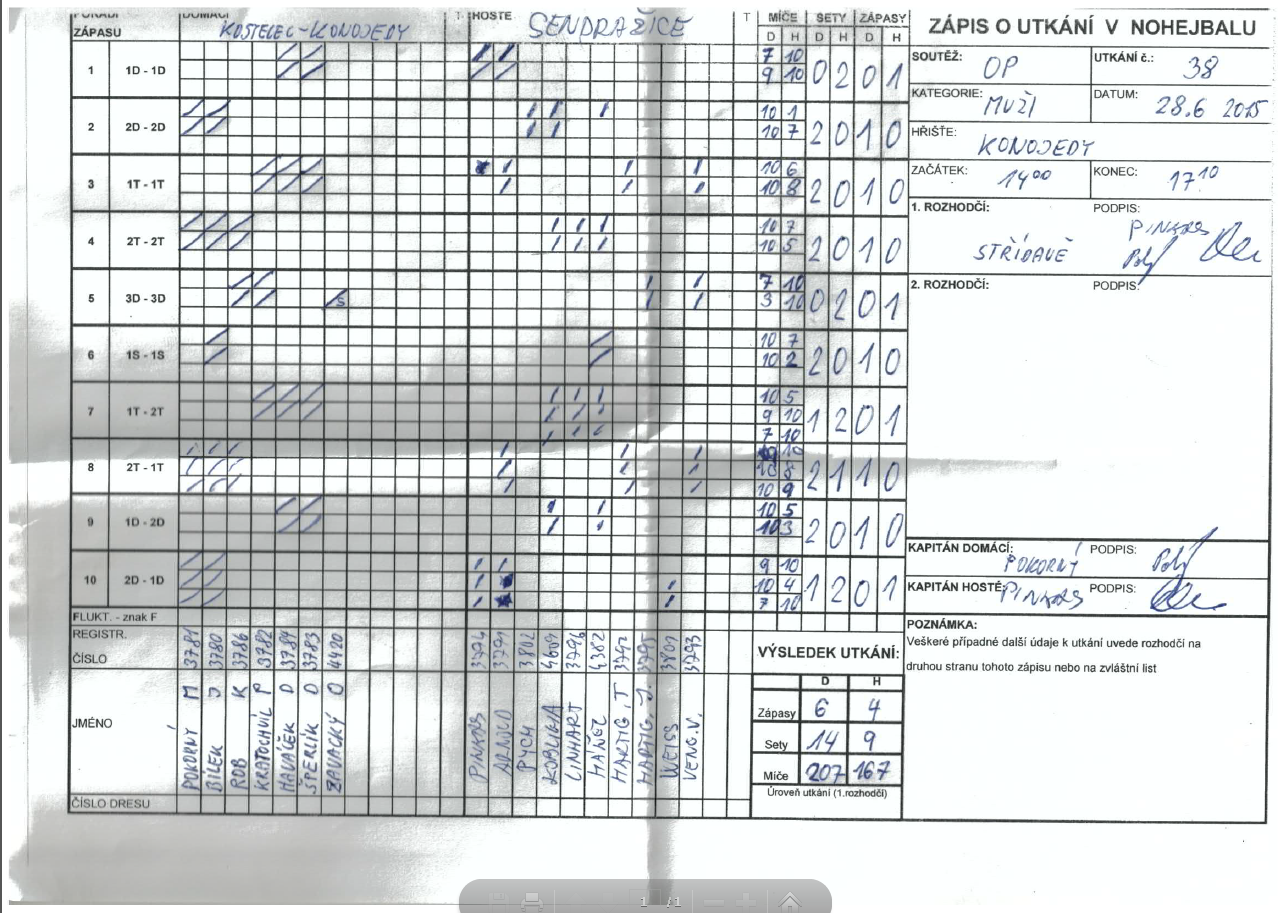 POŘADÍ ZÁPASU DOMÁCÍ KOSTELEC-KONOJEDY T HOSTÉ SENDRAŽICE T MÍČE SETY ZÁPASY
D H D H D H
1 1D - 1D 7 10 0 2 0 1
9 10
2 2D - 2D 10 1 2 0 1 0
10 7
3 1T - 1T 10 6 2 0 1 0
10 8
4 2T - 2T 10 7 2 0 1 0
10 5
5 3D - 3D S 7 10 0 2 0 1
3 10
6 1S - 1S 10 7 2 0 1 0
10 2
7 1T - 2T 10 5 1 2 0 1
9 10
7 10
8 2T - 1T 10 2 1 1 0
10 8
10 9
9 1D - 2D 10 5 2 0 1 0
10 3
10 2D - 1D 9 10 1 2 0 1
10 4
7 10
FLUKT. - znak F
REGISTR. ČÍSLO 3781 3780 3786 3782 3784 3783 4420 3794 3791 3802 4609 3796 4382 3792 3795 3801 3793
JMÉNO POKORNÝ M BÍLEK J ROB K KRATOCHVÍL P HAVÁČEK D ŠPERLÍK D ZAVACKÝ O PINKAS ARNOLD PYCH KOBLIHA LINHART HÁNĚL HARTIG, T HARTIG, J. WEISS VENC.V.
ČÍSLO DRESU
VÝSLEDEK UTKÁNÍ:
D H
Zápasy 6 4
Sety 14 9
Míče 207 167
Úroveň utkání (1.rozhodčí)
ZÁPIS O UTKÁNÍ V NOHEJBALU
SOUTĚŽ: OP UTKÁNÍ č.: 38
KATEGORIE: MUŽI DATUM: 28.6 2015
HŘIŠTĚ: KONOJEDY
ZAČÁTEK: 14 00 KONEC: 17 10
1. ROZHODČÍ: PODPIS:
STŘÍDAVĚ PINKAS
2. ROZHODČÍ: PODPIS:
KAPITÁN DOMÁCÍ: POKORNÝ PODPIS:
KAPITÁN HOSTÉ: PINKAS PODPIS:
POZNÁMKA:
Veškeré případné další údaje k utkání uvede rozhodčí na
druhou stranu tohoto zápisu nebo na zvláštní list
1 / 1